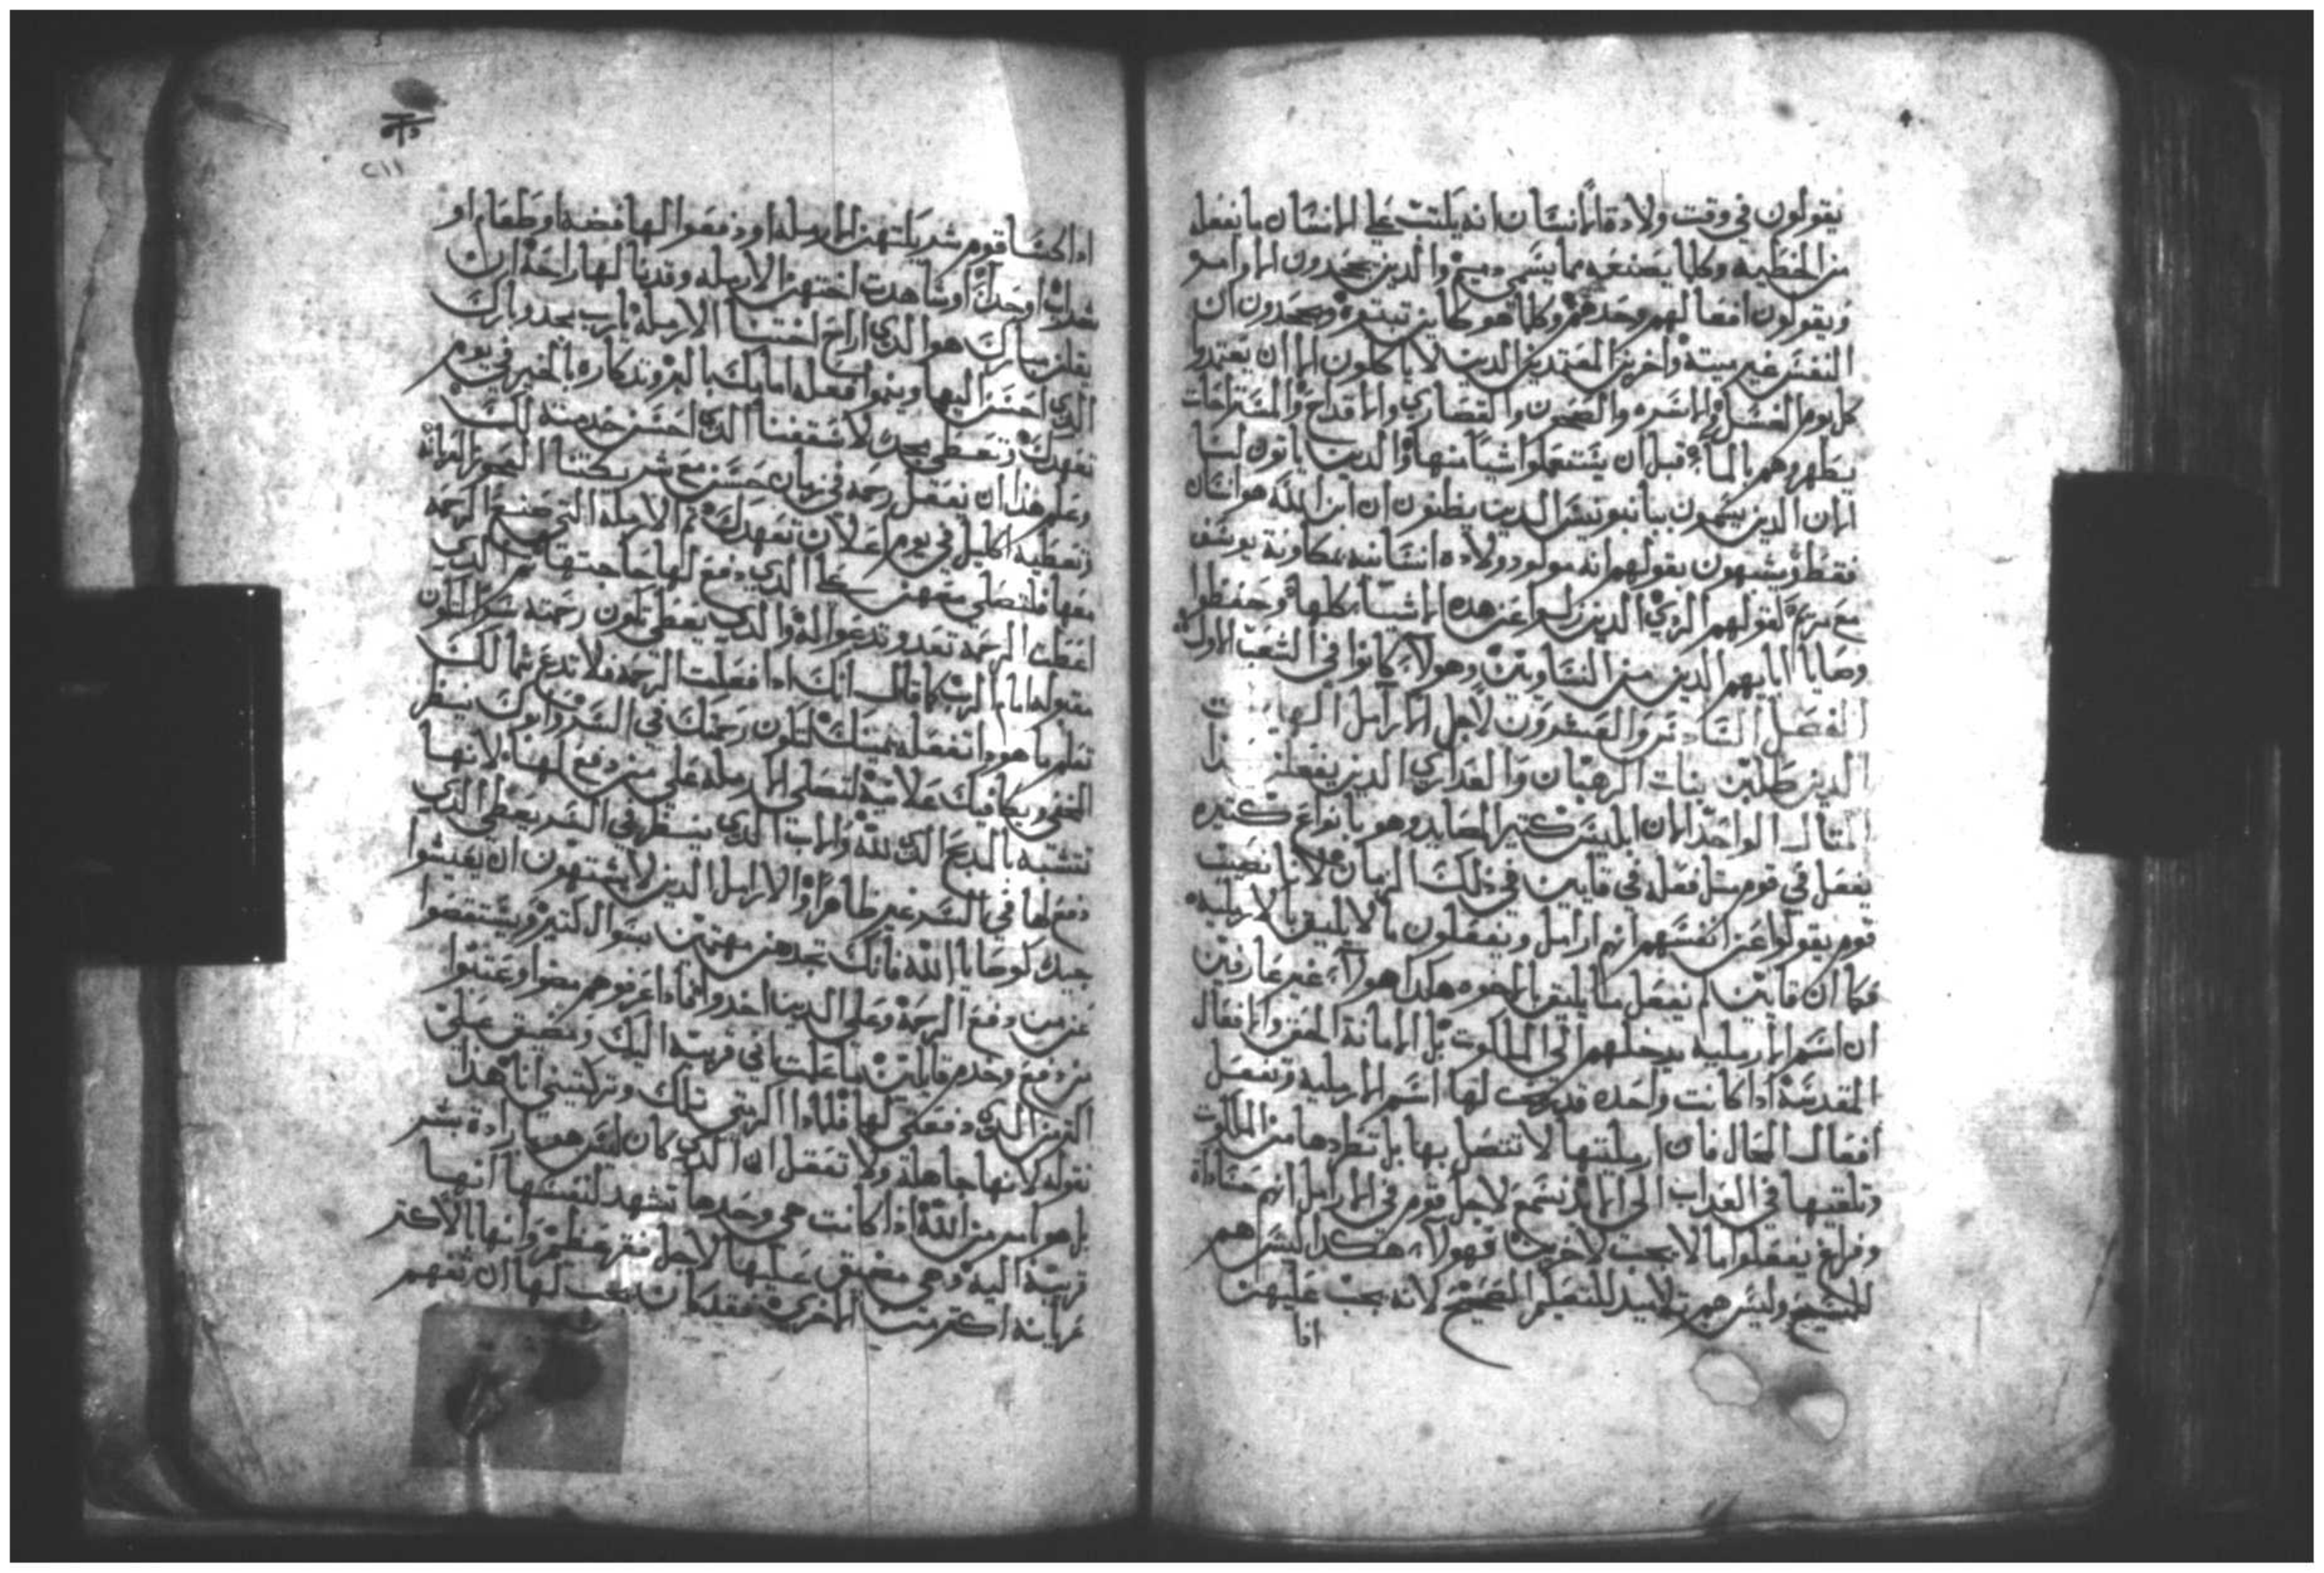 يقولون في وقت ولادة الانسان انه يلتت علي الانسان ما نفعله
من الخطيه وكلما يصنعه مما يسمي دميح والدين يجحدون الاوامر
ويقولون افعالهم وحدهم وكلما هو كاين تبتوه ويجحدون ان
النفس غير ميتة واخرين المعتدين الدين لا ياكلون الا ان يعتدو
كل يوم الغسل والاسره والصحون والقصاري والاقداح والمستراحات
يطهروهم بالماء قبل ان يستعملوا شيا منها والدين ياتون لنا
الان الدين يسمون بيانيونيتس الدين يظنون ان ابن الله هو انسان
فقط ويشبهون بقولهم انه مولود ولاده انسانيه يوسف
مع مريم لقولهم الردي الدين زلوا عن هده الاشيا كلها وحفظوا
وصايا ابايهم الدين من وهولاء كانوا في الشعب الاول
الفصل السادس والعشرون لاجل الارامل
الدين بنات الرهبان والعداري الدين يفعلن
المتال الواحد الان ابليس كتير المصايد وهو بانواع كتيره
يفعل في قوم متل فعله في قايين في ذلك الزمان لانا نصيب
قوم يقولوا عن انفسهم انهم ارامل ويفعلون ما لا يليق بالارمليه
فكما ان قايين لم يفعل ما يليق بالاخوه هكدا هولاء غير عارفين
ان اسم الارمليه يدخلهم الي الملكوت بل الامانة الحق والافعال
المقدسة ادا كانت واحده قد لها اسم الارمليه وتفعل
افعال المحال فان ارملتها لا تتصل بها بل تطردها من الملكوت
وتلقيها في العداب الي الابد نسمع لاجل قوم في الارامل انهم حساده
وفراغ يفعلوا ما لا يجب لاخريت فهولاء هكدا ليس هم
للمسيح وليس هم تلاميد للتعليم الصحيح لانه يجب عليهن
اذا
٢١١
ادا احسنا قوم شريكتهن الارمله او دفعوا لها فضه او طعام او
شراب او حداء او شاهدت اختهن الارمله وقد نالها راحة ان
يقلن مبارك هو الدي اراح لختنا الارمله يارب مجد وبارك
الدي احسن اليها وينموا فعله امامك بالبر وتدكاره بالخير في يوم
تعهدك وتعطي مجد لاسقفنا الدي احسن خدمته لك
وعلم هدا ان نفعل رحمه في زمان حسن مع شريكتنا العجوز العريانه
وتعطيه اكليل في يوم اعلان تعهدك تم الارمله التي صنع الرحمه
معها فلتصلي معهن كلا الدي دفع لها حاجتها تم الدي
اعطت الرحمه تعد وتدعوا له والدي يعطي تكون رحمته سرا لتكون
مقبوله امام الرب كما قال انك ادا فعلت الرحمه فلا تدع شمالك
تعلم ما هو ما تفعله يمينك لتكون رحمتك في السر وابوك ينظر
الخفي ويكافيك علانيه لتصلي الارمله علي من دفع لها لانها
تتشبه بالمدبح الدي لله والاب الدي ينظر في السر يعطي الدي
دفع لها في السر غير ظاهرا والارامل الدين لا يشتهون ان يعيشوا
جيدا كوصايا الله فانك تجدهن مهتمين بسوال كتير ويستقصوا
عن من دفع الرحمه وعلي الدين اخدوا فادا عرفوهم مضوا وعتبوا
من دفع وخدم قايلين ما علمت اني قريبة اليك ومضيق علي
اكتر من الدي دفعتي لها فلمادا اكرمتي تلك وتركتيني انا هدا
تقوله لانها جاهله ولا تعقل ان الدي كان ليس هو بارادة بشر
بل هو امر من الله ادا كانت هي وحدها تشهد لنفسها انها
قريبة اليه وهي مضيق عليها لاجل فقر عظيم وانها الاكتر
عريانه اكتر من الاخري فقد كان يجب لها ان تفهم